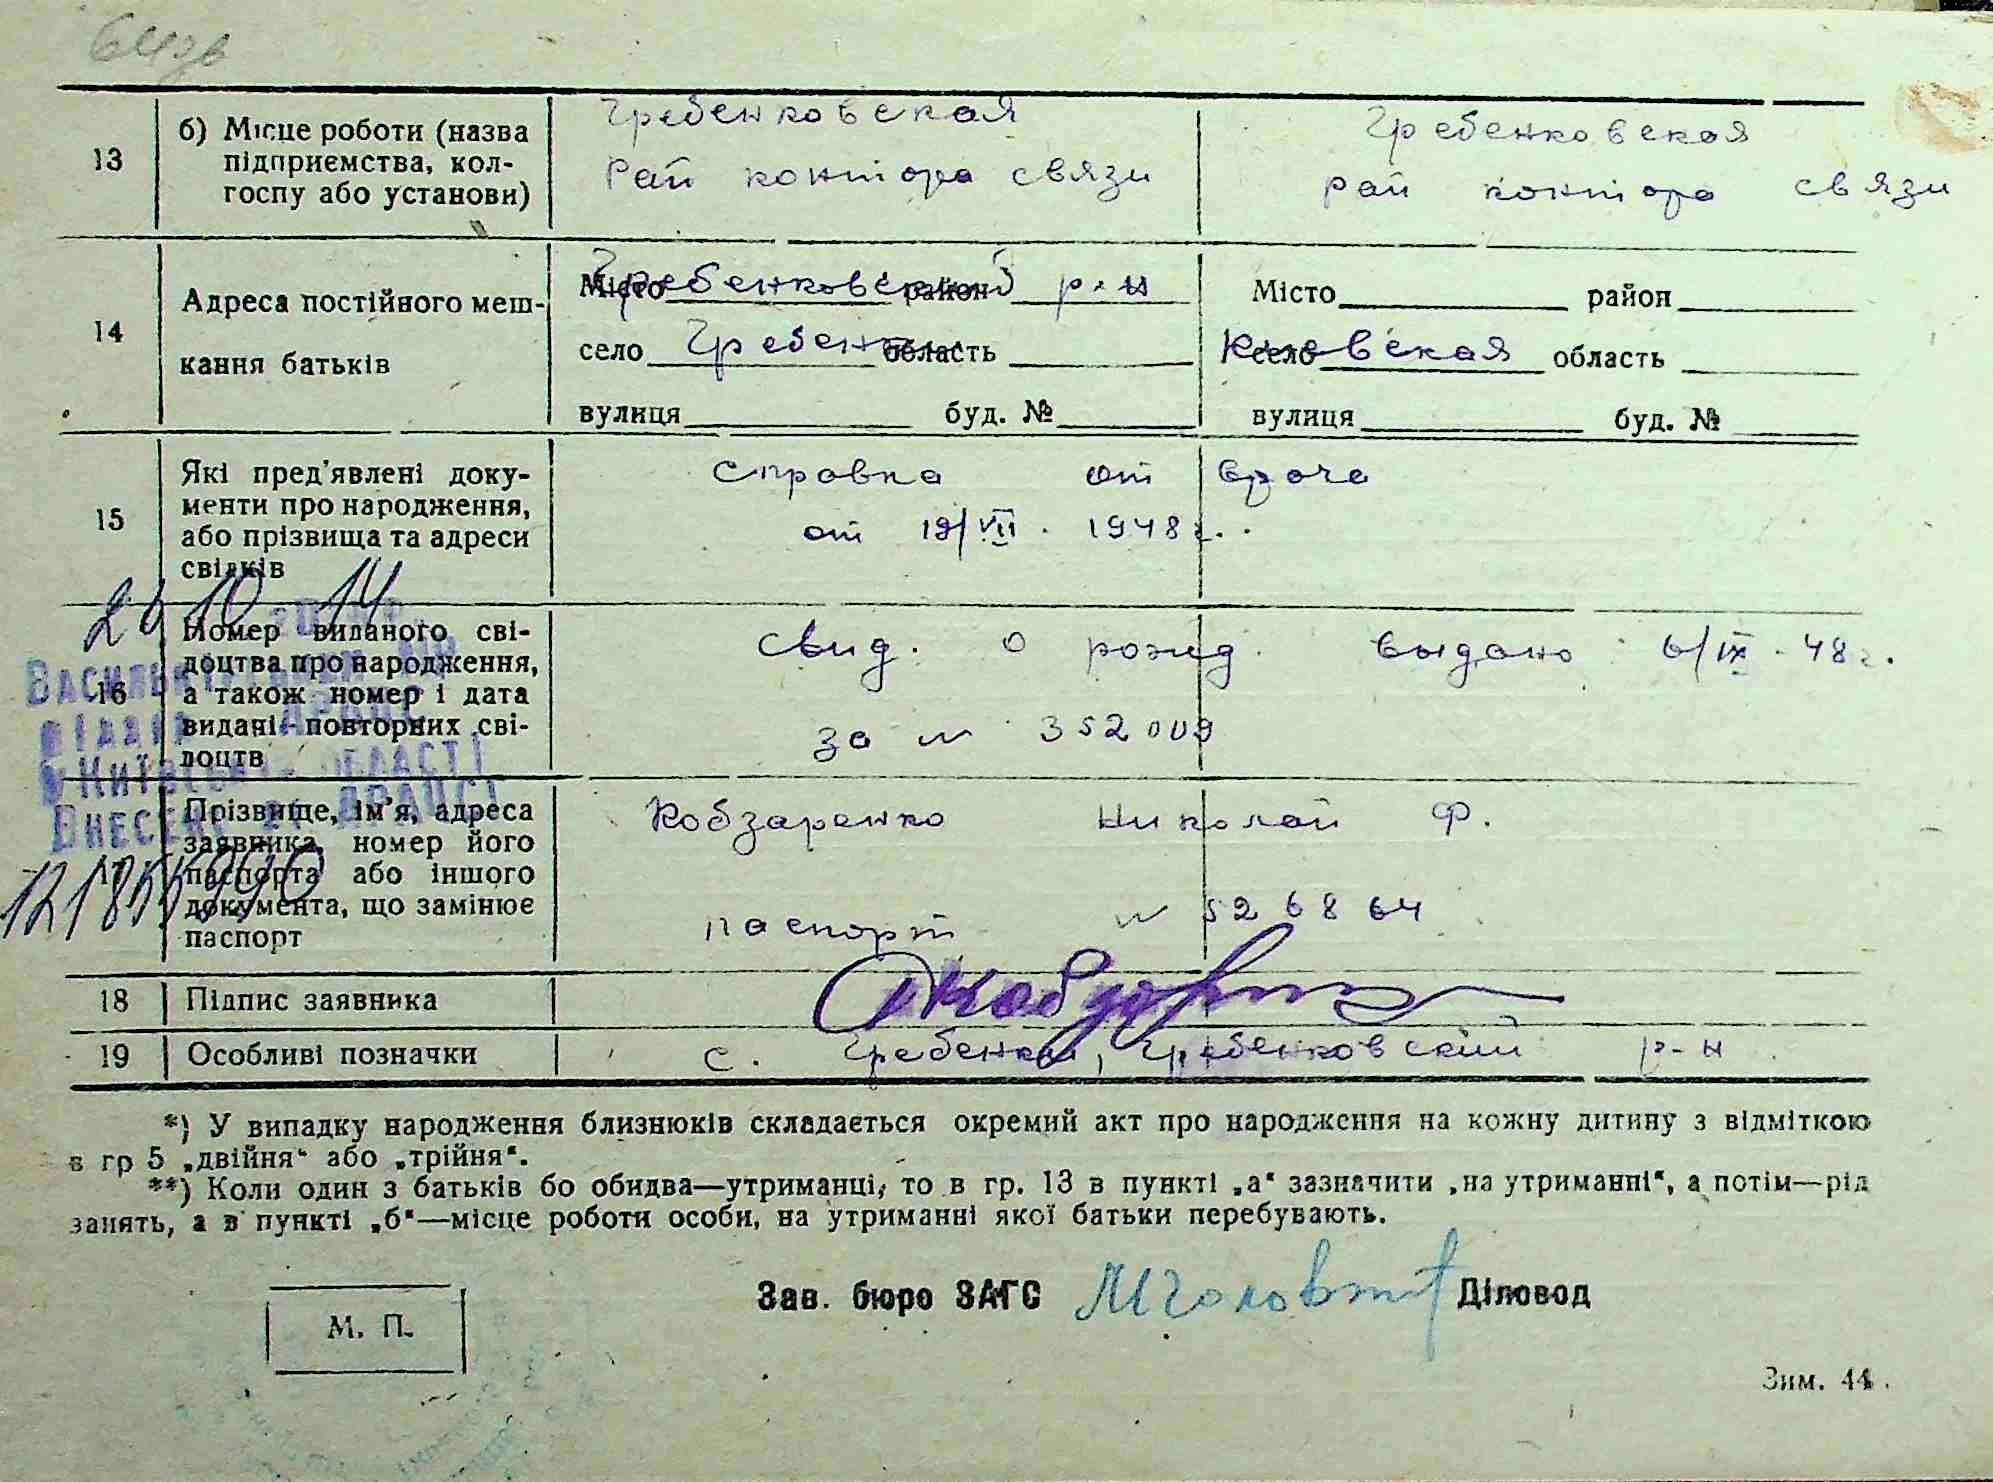 64зв
13
б) Місце роботи (назва
підприємства, кол-
госпу або установи)
Гребенковская
Рай контора связи
Гребенковская
рай контора связи
14
Адреса постійного меш-
кання батьків
Місто район
Гребенковский р-н
село область
Гребенки
вулиця буд. №
Місто район
село область
Киевская
вулиця буд. №
15
Які пред'явлені доку-
менти про народження,
або прізвища та адреси
свідків
Справка от врача
от 19/VII. 1948 г.
16
Номер виданого сві-
доцтва про народження,
а також номер і дата
видачі повторних сві-
доцтв
свид. о рожд. выдано 6/IX. 48 г.
за № 352009
17
Прізвище, ім'я, адреса
заявника, номер його
паспорта або іншого
документа, що замінює
паспорт
Кобзаренко Николай Ф.
паспорт № 526864
18
Підпис заявника
19
Особливі позначки
с. Гребенки, Гребенковский р-н
*) У випадку народження близнюків складається окремий акт про народження на кожну дитину з відміткою
в гр 5 „двійня“ або „трійня“.
**) Коли один з батьків бо обидва—утриманці, то в гр. 13 в пункті „а“ зазначити „на утриманні“, а потім—рід
занять, а в пункті „б“—місце роботи особи, на утриманні якої батьки перебувають.
Зав. бюро ЗАГС
Діловод
М. П.
Зим. 44